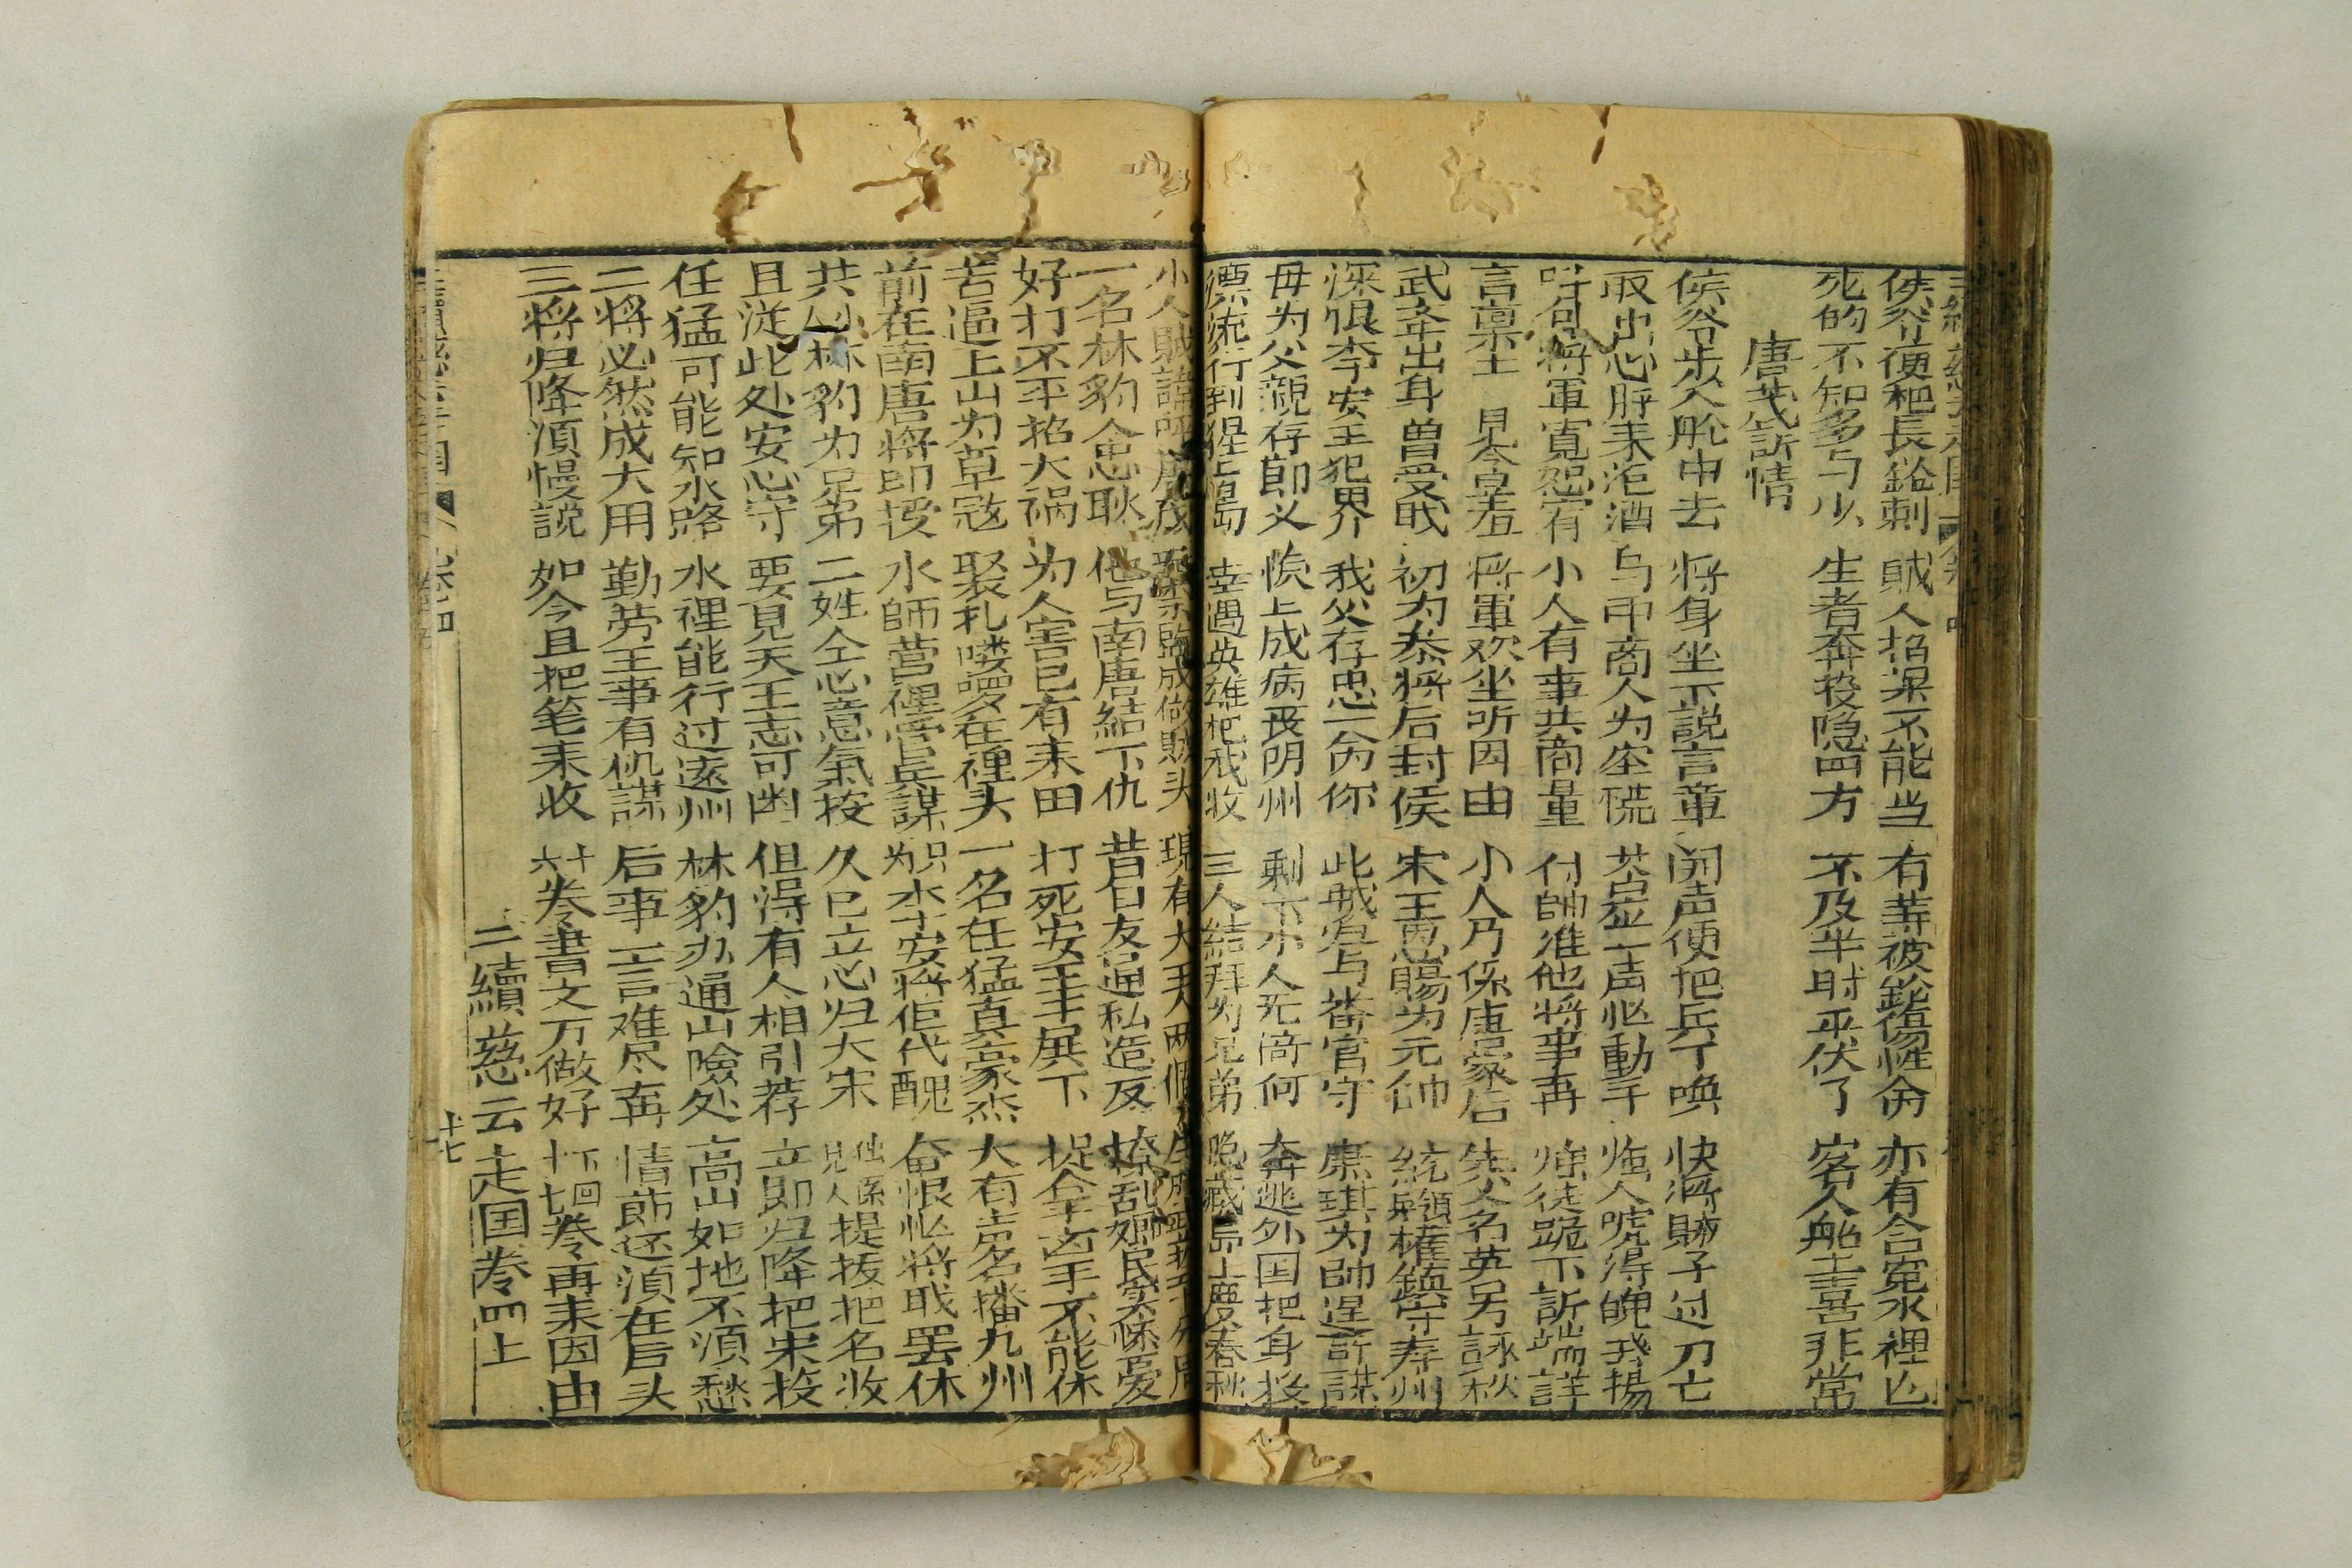 侯爷便把長鎗刺 賊人招架不能当 有等被鎗傷性命 亦有含冤水裡亡
死的不知多与少 生者奔投隐四方 不及半时平伏了 客人船主喜非常
唐茂訴情
侯爷步入舱中去 将身坐下説言章 開声便把兵丁唤 快将賊子过刀亡
取出心肝来沱酒 与中商人为压慌 答应一声忙動手 强人唬得魄飛揚
叫句将軍寬恕宥 小人有事共商量 付帥准他将事再 强徒跪下訴端詳
言禀士 見容羞 将軍欢坐听因由 小人乃係唐家后 先父名英另詠秋
武举出身曾受职 初为叅将后封侯 宋王恩賜为元帅 統領兵權鎮守寿州
深恨李安王犯界 我父存忠一命休 此城眉与蕃官守 康琪为帥逞奸謀
母为父親存節义 惔上成病丧阴州 剩下小人无倚何 奔逃外国把身投
漂流行到猩猩島 幸遇英雄把我收 三人結拜为兄弟 晚藏島上慶春秋
小人賊諱叫唐茂 聚眾臨成做賊头 現有大王兩個
一名林豹仝忠耿 他与南唐結下仇 昔日友通私造反 撩乱娘民实慘憂
好打不平招大禍 为人害己有来由 打死安王手展下 捉拿凶手不能休
苦逼上山为草寇 聚扎喽啰在裡头 一名任猛真豪杰 大有声名播九州
前在南唐将印授 水師营裡管兵謀 只为李安将佢代醜 奮恨忙将戢罢休
共仝林豹为兄弟 二姓仝心意氣投 久已立心归大宋 佢係見人提拔把名收
且從此处安心守 要見天王志可凼 但得有人相引荐 立即归降把宋投
任猛可能知水路 水裡能行过遠州 林豹亦通山險处 高山如地不須愁
二将必然成大用 勤劳王事有机謀 后事一言难尽再 情節还須在后头
三将归降須慢説 如今且把笔来收 十六卷書文万做好 下回十七卷再来因由
二續慈云走国卷四上
十七